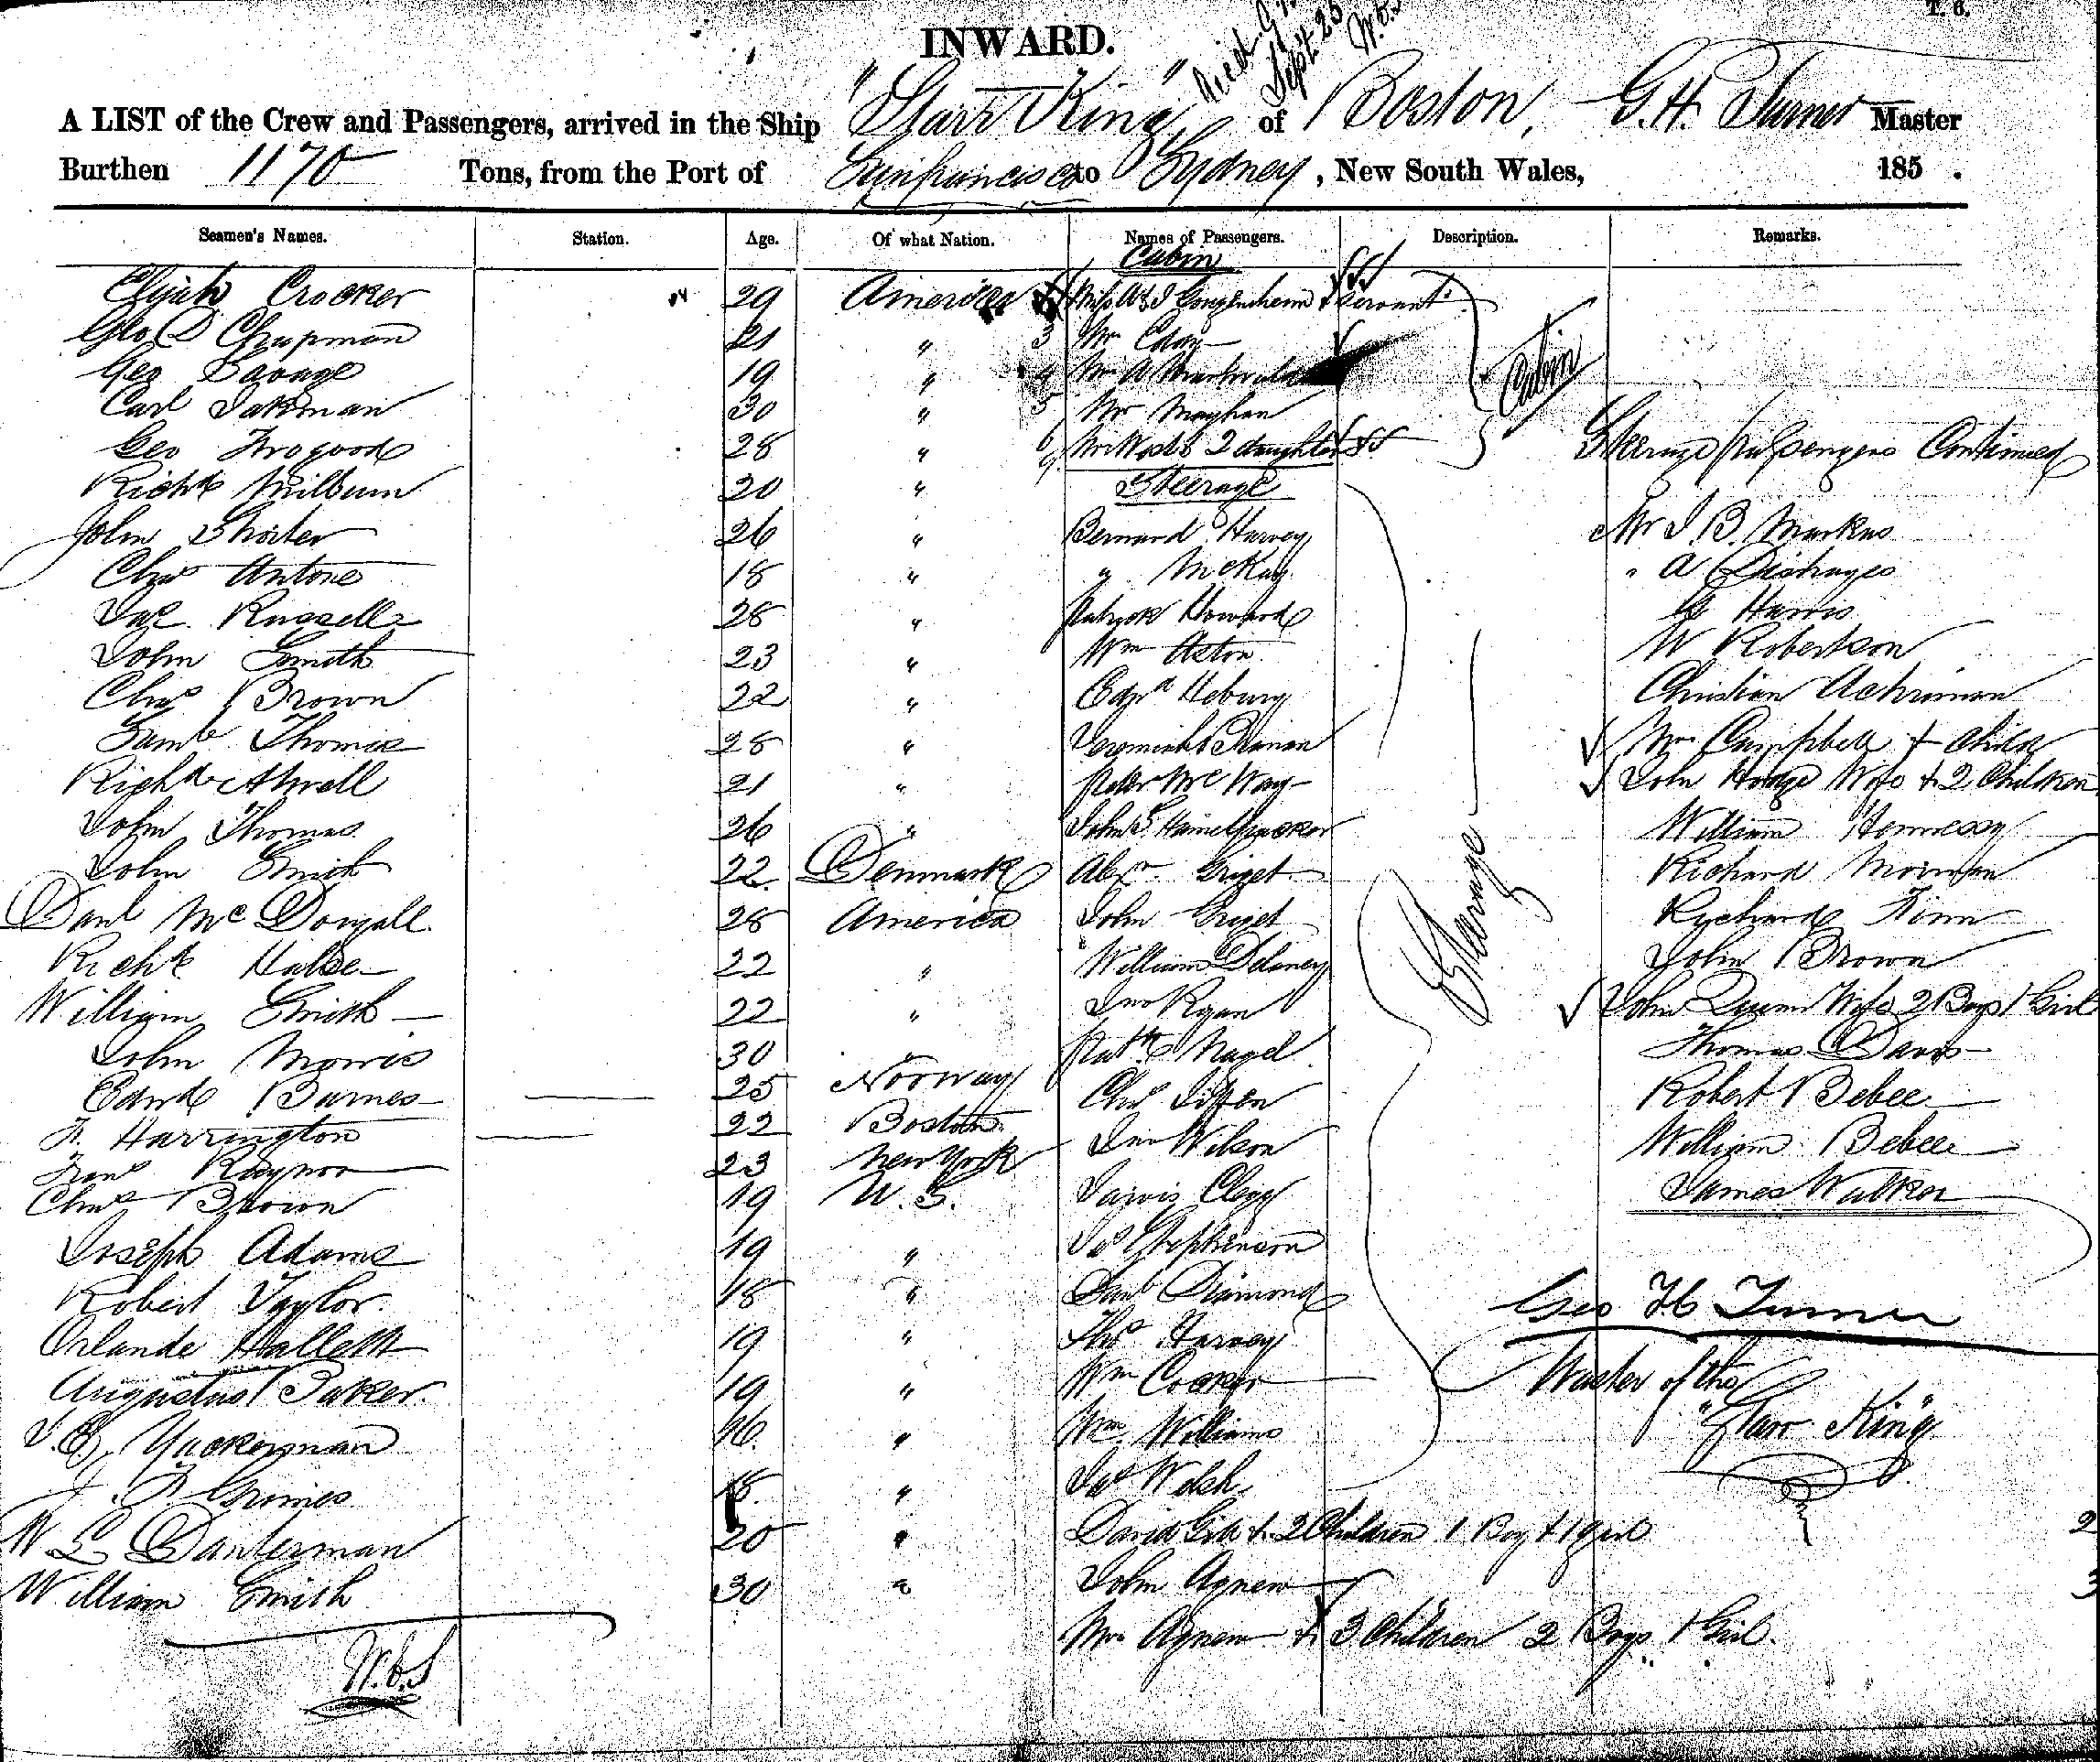 T. 6.
INWARD.
Sept. 25
A LIST of the Crew and Passengers, arrived in the Ship "Starr King" of Boston, G.H. Turner Master
Burthen 1170 Tons, from the Port of Sanfrancisco to Sydney, New South Wales, 185 .
Seamen's Names. Station. Age. Of what Nation. Names of Passengers. Description. Remarks.
Cabin
Elijah Crocker 29 America Miss & Servant
Geo D Chapman 21 " 3 Mr
Geo Savage 19 " 4 Mr A Cabin
Carl 30 " 5 Mr
Geo 28 " 6 2 daughters Steerage Passengers Continued
Richd Milburn 20 " Steerage
John Shorter 26 " Bernard Harvey Mr I. B. Markus
Chas Antone 18 " " McKay " A
Jas Russell 28 " Patrick Howard G Harris
John Smith 23 " Wm Aston W Robertson
Chas Brown 22 " Edwd Christian
Saml Thomas 28 " Jeremiah Mrs Campbell + Child
Richd Atwell 21 " Peter Mc John Hodge Wife + 2 Children
John Thomas 26 " John S. William Hennessy
John Smith 22 Denmark Alexr Griget Richard
Danl McDougall 28 America John Griget Richard Finn
Richd 22 " William Delaney John Brown
William Smith 22 " Jno Ryan John Quinn Wife 2 Boys 1 Girl
John Morris 30 " Patk Nagel Thomas Davis
Edwd Barnes 25 Norway Chas Robert Bebee
F. Harrington 22 Boston Jno Wilson William Bebee
Fran Raynor 23 New York Jarvis Clegg James Walker
Chas Brown 19 U. S. Jas Stephenson
Steerage
Joseph Adams 19 " Saml Diamond
Robert Taylor 18 " Thos Harvey Geo H Turner
Orlando Hallett 19 " Wm
Augustus Baker 19 " Wm Williams Master of the
16 " Jas Welsh "Starr King"
Grimes 18 "
20 " David Gill + 2 Children 1 Boy + 1 girl 2
William Smith 30 " John Agnew 3
Mrs Agnew + 3 Children 2 Boys 1 Girl.